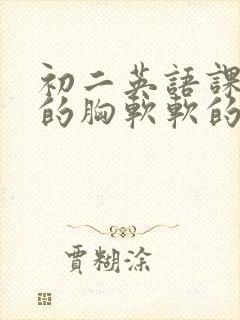 初二英語課
的胸軟軟的
賈糊涂